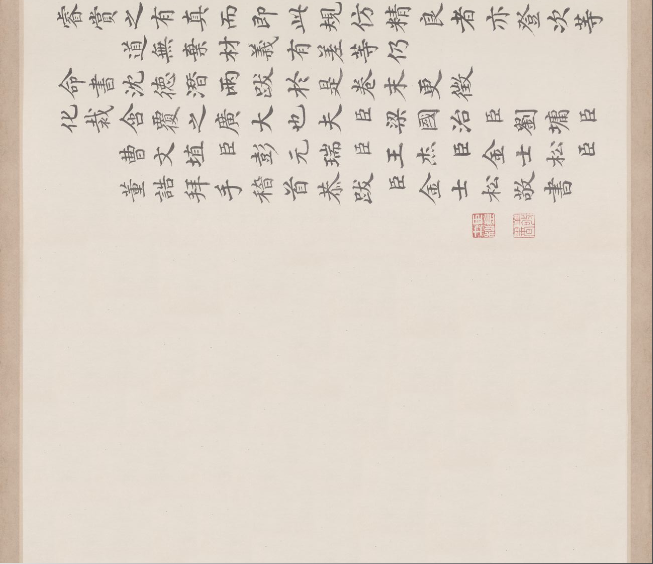 睿賞之有真而即此規仿精良者亦登次等
道無棄材義有差等仍
命書沈德潛兩跋於是卷末更徵
化裁含覆之廣大也夫臣梁國治臣劉墉臣
曹文埴臣彭元瑞臣王杰臣金士松臣
董誥拜手稽首恭跋臣金士松敬書